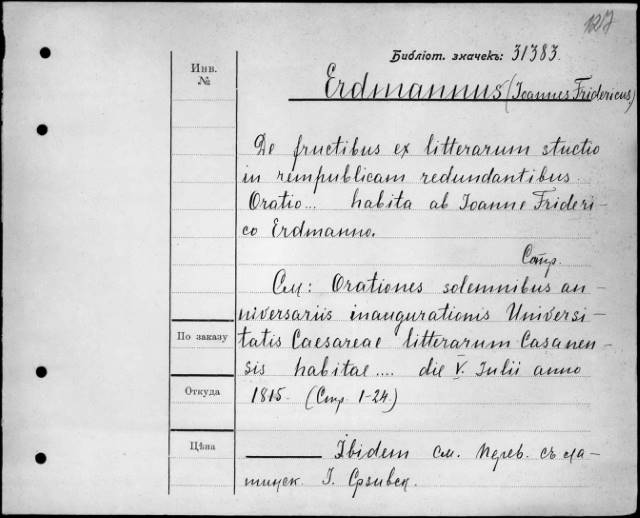 127
Библіот. значекъ: 31383.
Инв.
№
Erdmannus (Ioannus Fridericus)
De fructibus ex litterarum stuctio
in rempublicam redundantibus.
Oratio... habita ab Ioanne Frideri-
co Erdmanno.
Стр.
См: Orationes solemnibus an-
niversariis inaugurationis Universi-
По заказу
tatis Caesareae litterarum Casanen-
sis habitae.... die V. Iulii anno
Откуда
1815. (Стр 1-24.)
Цѣна
Ibidem см. перев. съ ла-
тинск. Г.